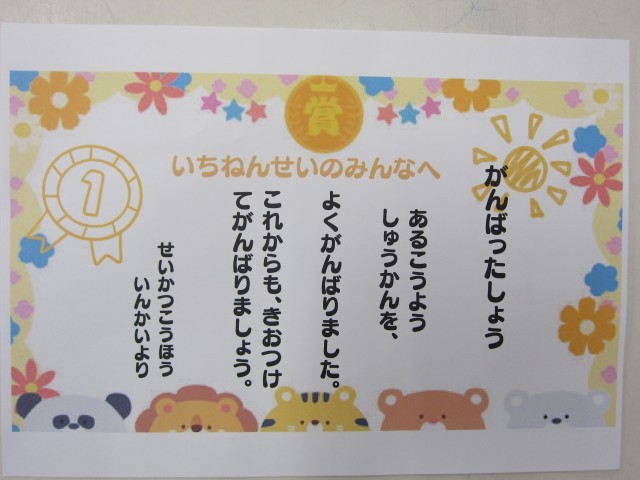 賞
いちねんせいのみんなへ
がんばったしょう
あるこうよう
しゅうかんを、
よくがんばりました。
これからも、きおつけ
てがんばりましょう。
せいかつこうほう
いんかいより
1